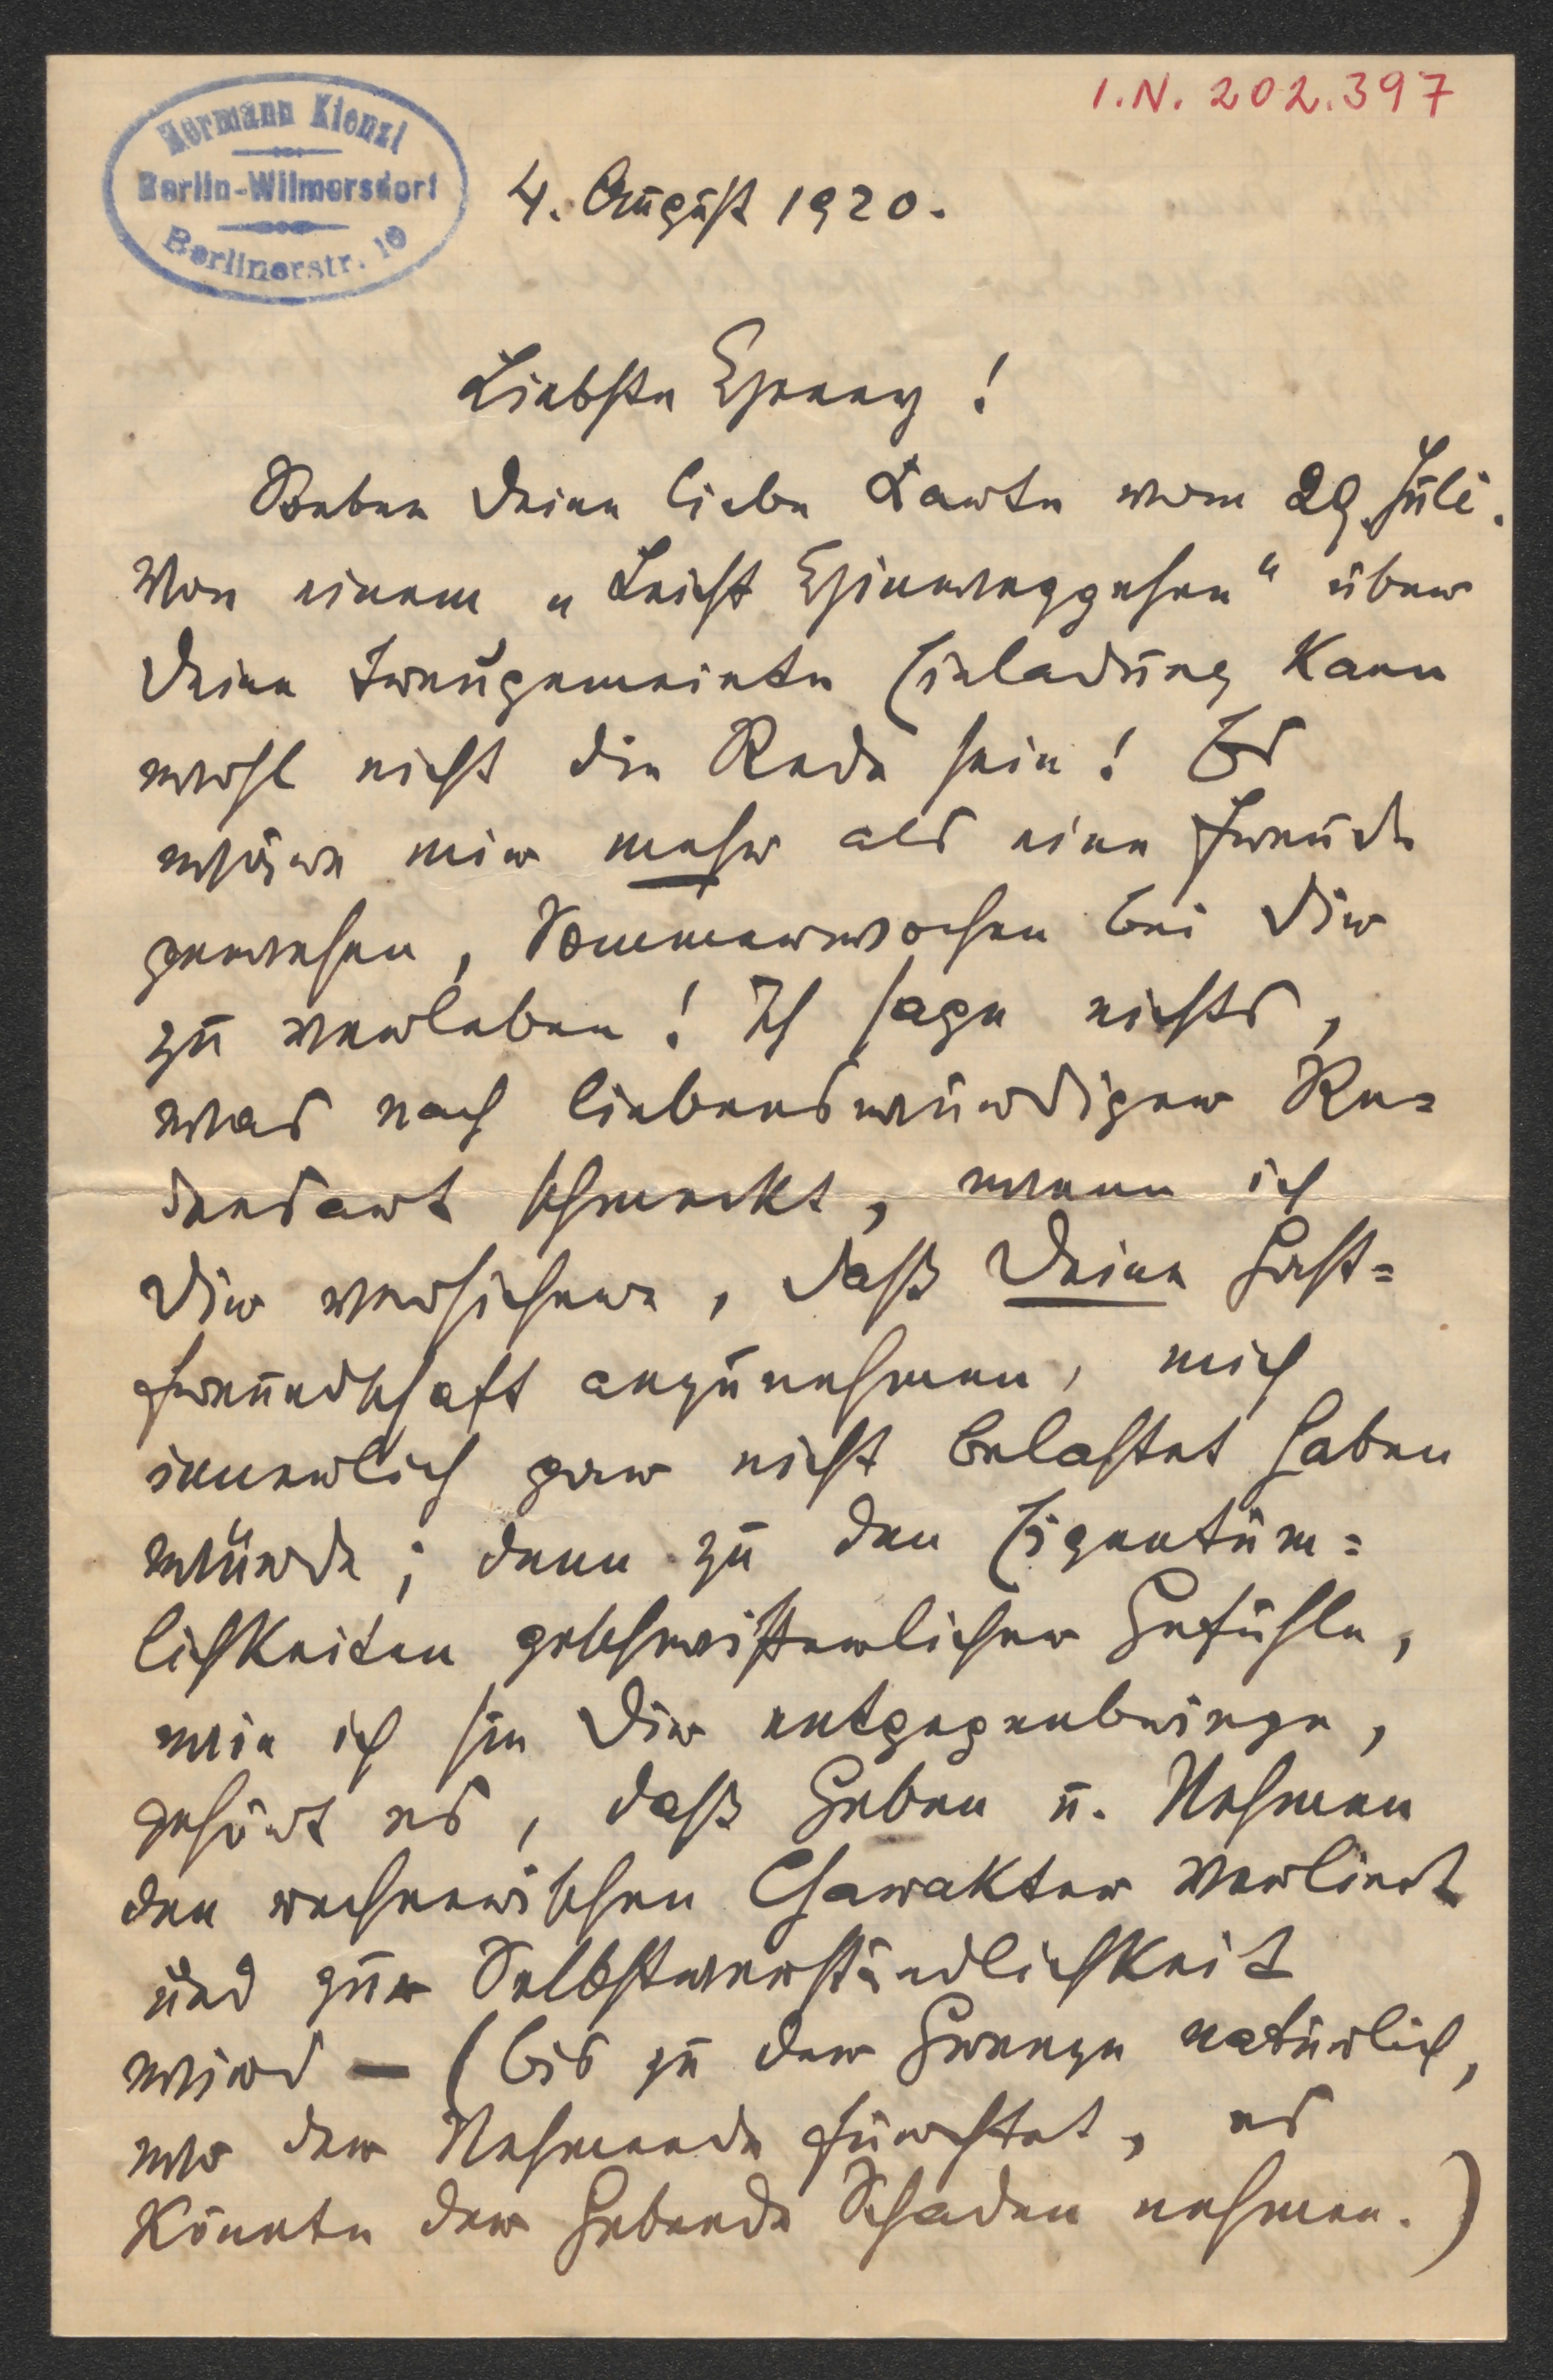 I.N. 202.397
Hermann Kienzl
Berlin-Wilmersdorf
Berlinerstr. 10
4. August 1920.
Liebste Henny!
Soeben Deine liebe Karte vom 29. Juli.
Von einem „Leicht Hinweggehen“ über
Deine treugemeinte Einladung kann
wohl nicht die Rede sein! Es
wäre mir mehr als eine Freude
gewesen, Sommerwochen bei Dir
zu verleben! Ich sage nichts,
was nach liebenswürdiger Re=
densart schmeckt, wenn ich
Dir versichere, daß Deine Gast=
freundschaft anzunehmen, mich
innerlich gar nicht belastet haben
würde; denn zu den Eigentüm=
lichkeiten geschwisterlicher Gefühle,
wie ich sie Dir entgegenbringe,
gehört es, daß Geben u. Nehmen
den rechnerischen Charakter verliert
und zur Selbstverständlichkeit
wird – (bis zu der Grenze natürlich,
wo der Nehmende fürchtet, es
könnte der Gebende Schaden nehmen.)